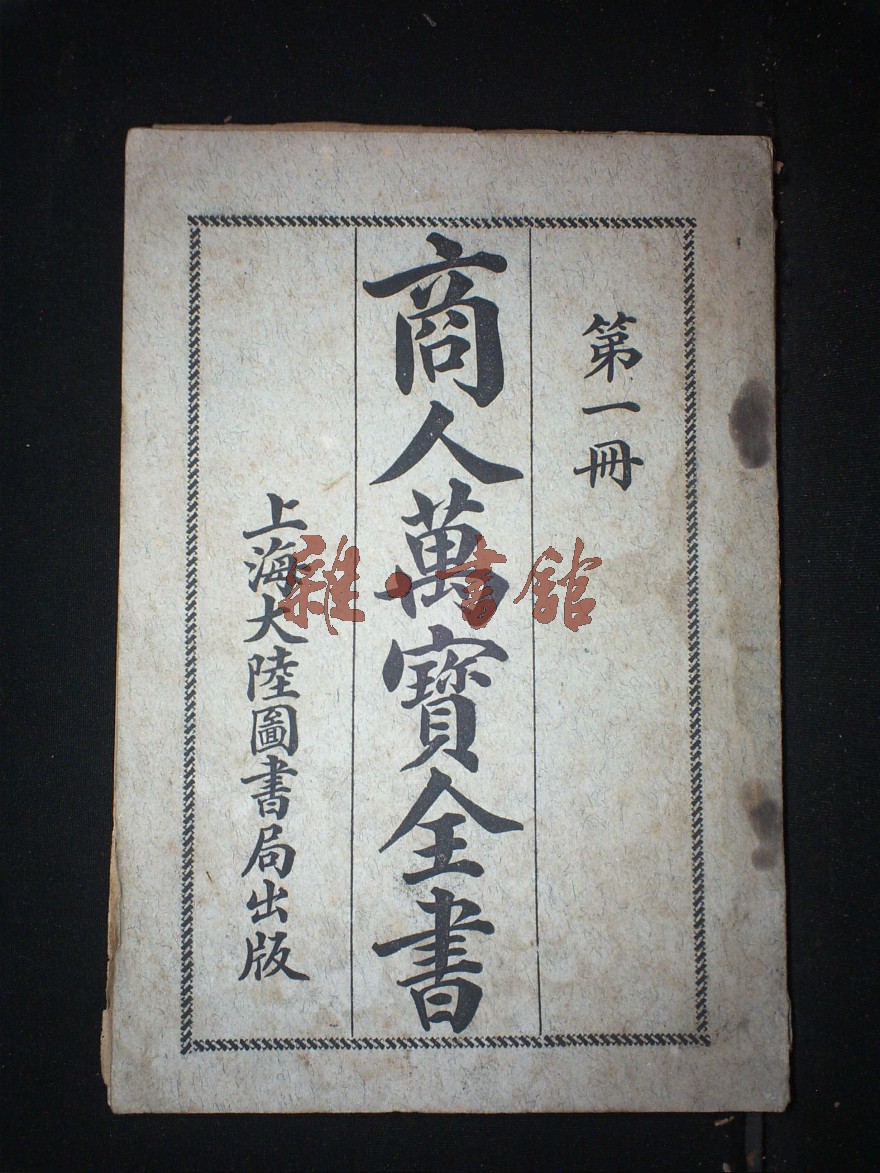 第一冊
商人萬寶全書
上海大陸圖書局出版
雜·書舘